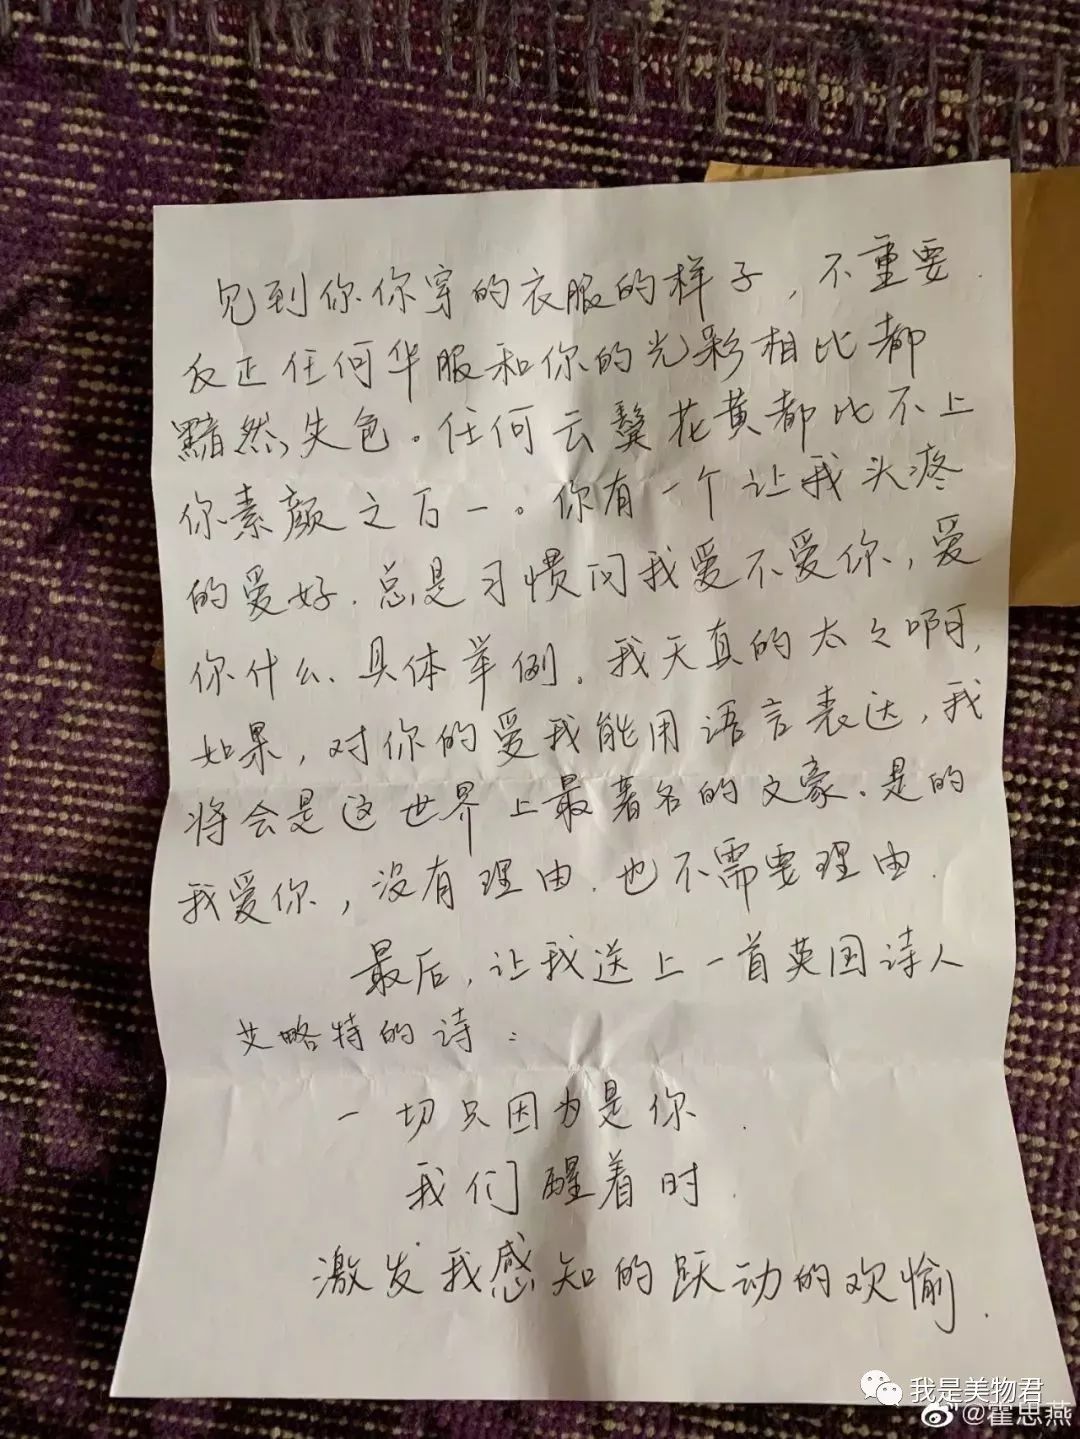 见到你你穿的衣服的样子，不重要.
反正任何华服和你的光彩相比都
黯然失色。任何云鬓花黄都比不上
你素颜之万一。你有一个让我头疼
的爱好.总是习惯问我爱不爱你，爱
你什么、具体举例。我天真的太太啊，
如果，对你的爱我能用语言表达，我
将会是这世界上最著名的文豪.是的
我爱你，没有理由.也不需要理由.
最后，让我送上一首英国诗人
艾略特的诗：
一切只因为是你.
我们醒着时.
激发我感知的跃动的欢愉.
我是美物君
@霍思燕